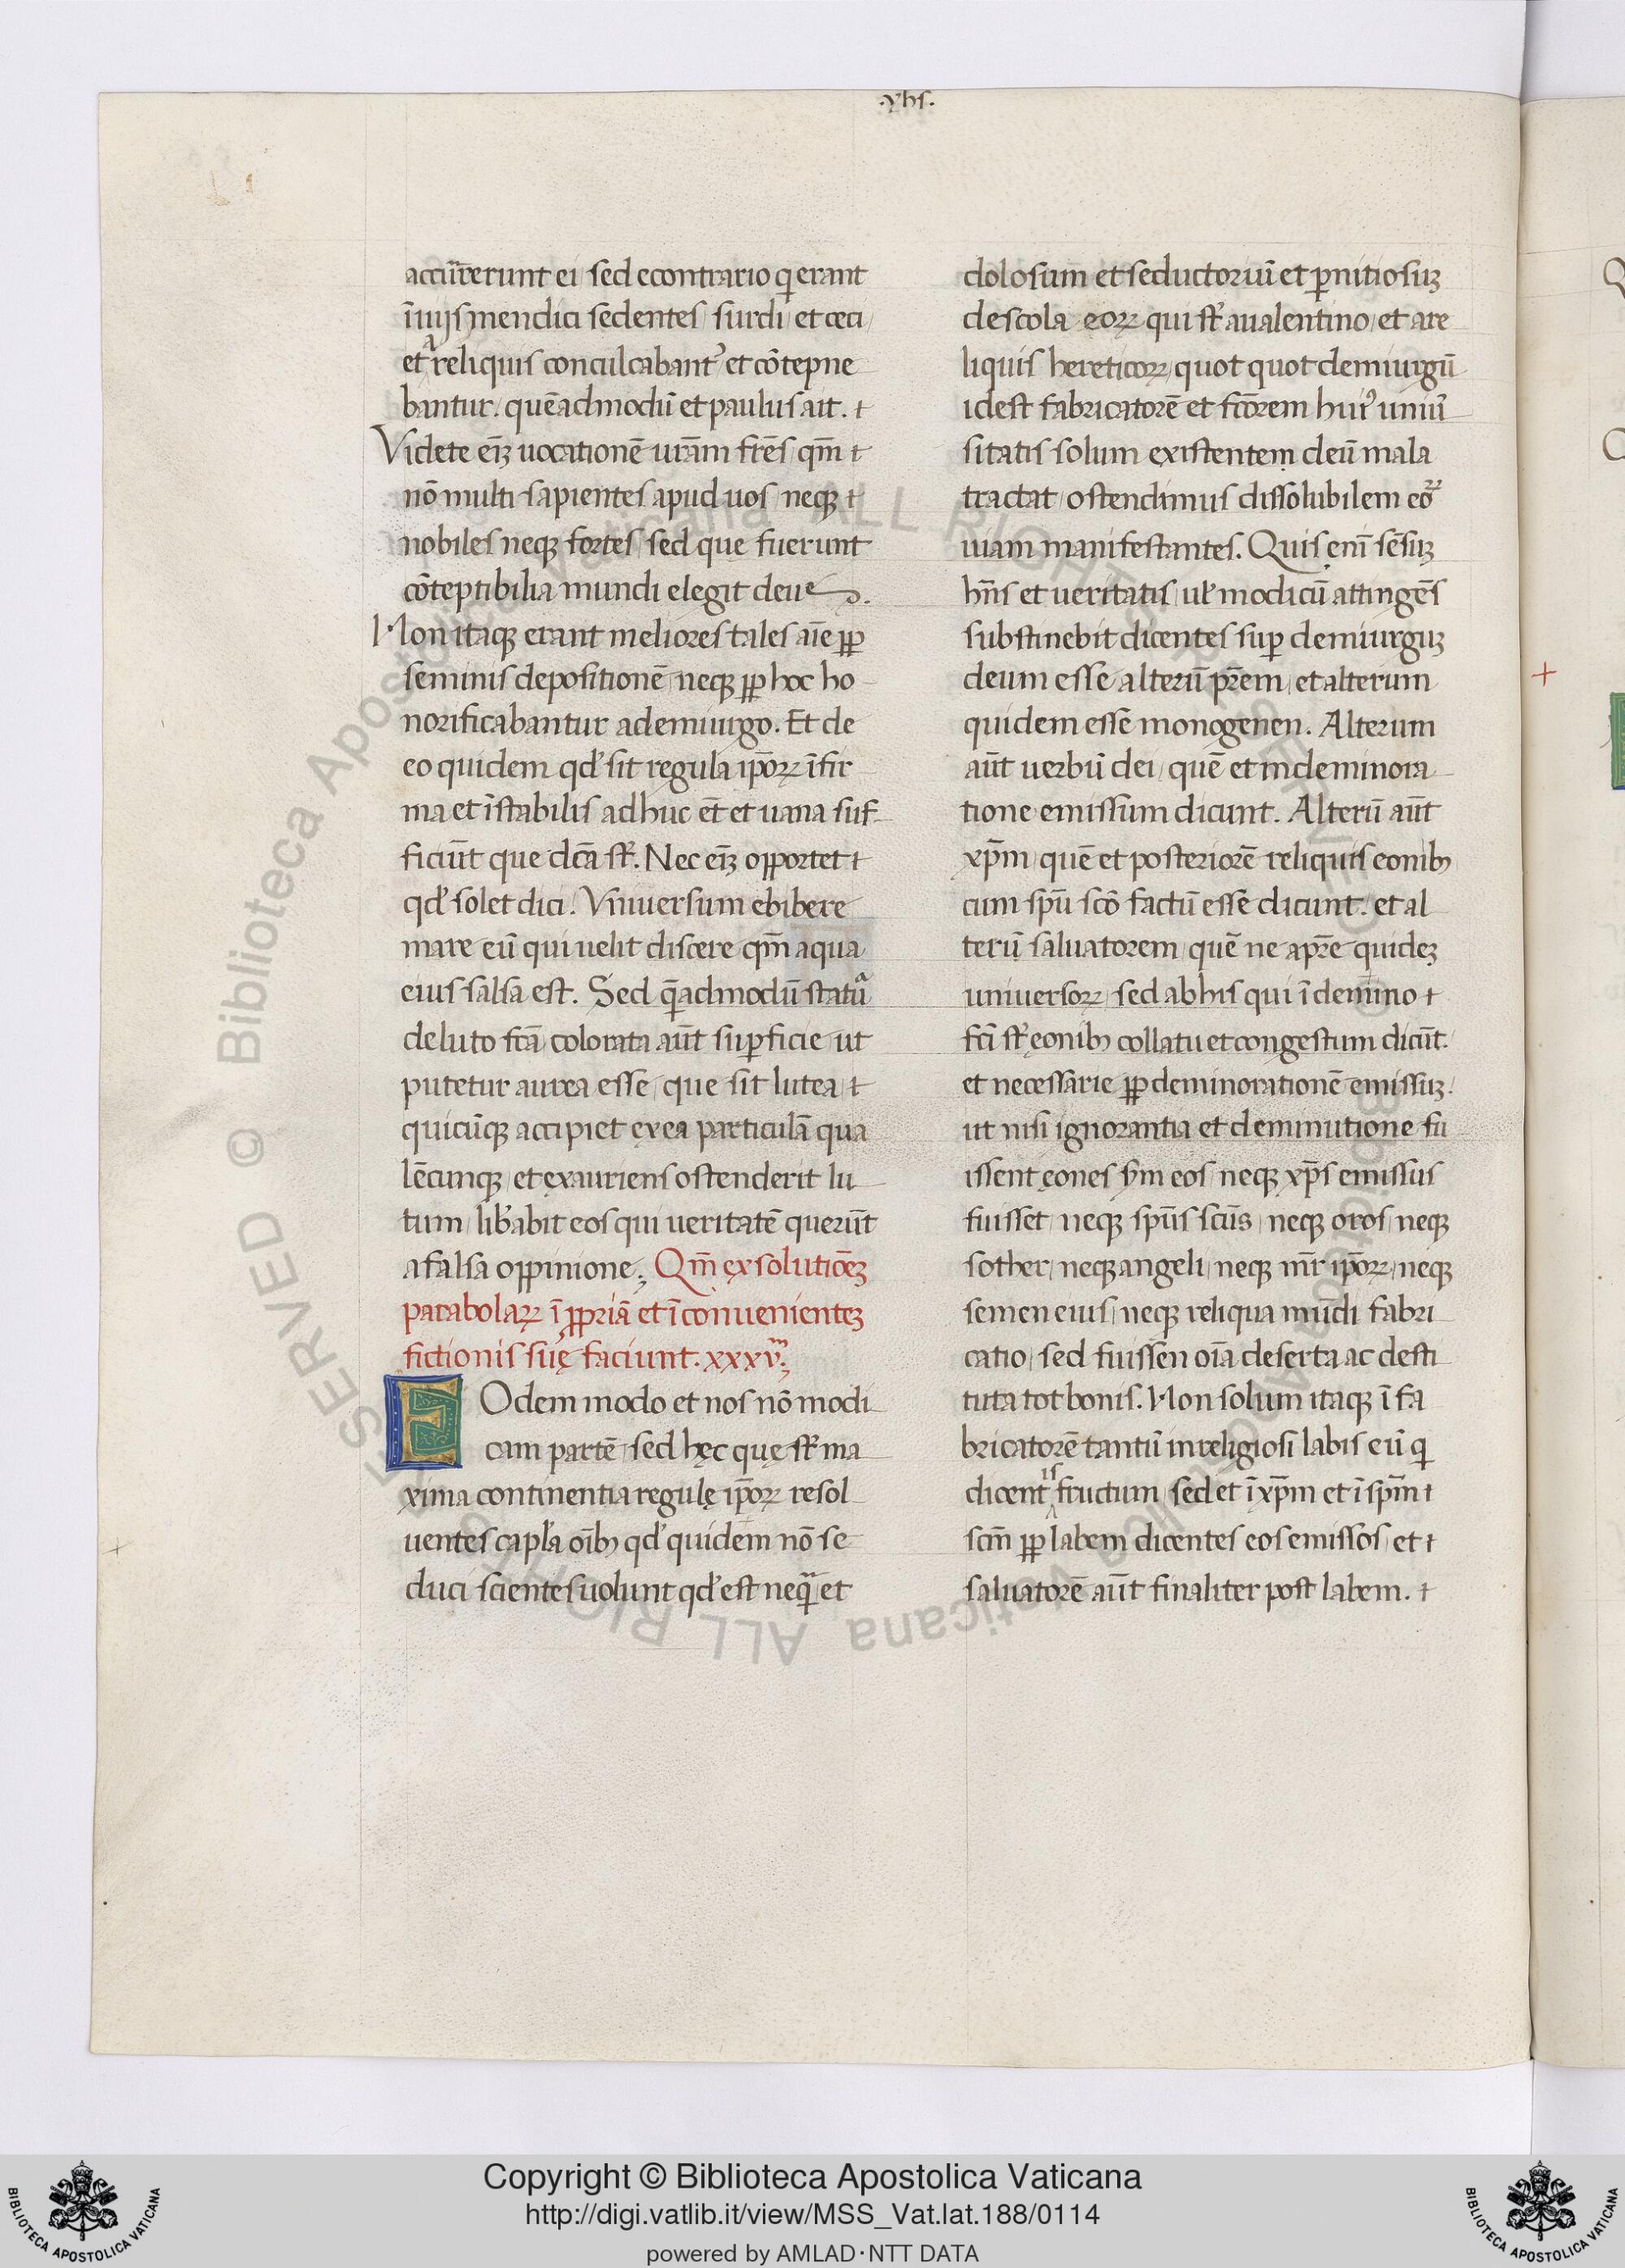 ·yhs·
accurrerunt ei sed econtrario qͥ erant
ī uijs mendici sedentes surdi et ceci
et a reliquis conculcabantᷣ et cōtepne
bantur. quēadmodū et paulus ait.
Videte eīꝫ uocationē urām frēs qm̄
nō multi sapientes apud uos neqꝫ
nobiles neqꝫ fortes sed que fuerunt
cōteptibilia mundi elegit deus.
Non itaqꝫ erant meliores tales aīe ꝓp
seminis depositionē neqꝫ ꝓp hoc ho
norificabantur ademiurgo. Et de
eo quidem qd' sit regula ipōꝝ īfir
ma et īstabilis adhuc et̄ et uana suf
ficiūt que dcā st̄. Nec eīꝫ opportet
qd' solet dici. Vniuersum ebibere
mare eū qui uelit discere qm̄ aqua
eius salsa est. Sed q̄admodū statuᷓ
de luto fcā colorata aūt suꝑficie ut
putetur aurea esse que sit lutea
quicūqꝫ accipiet ex ea particulā qua
lēcunqꝫ et exauriens ostenderit lu
tum lib'abit eos qui ueritatē querūt
a falsa oppinione. Qm̄ ex solutiōeꝫ
parabolaꝝ ī ꝓpriā et īconuenienteꝫ
fictionis suę faciunt. xxxv.
EOdem modo et nos nō modi
cam partē sed hęc quę st̄ ma
xima continentia regulę ipōꝝ resol
uentes capl'a oībꝫ qd' quidem nō se
duci scientes uolunt qd' est neqᷓ et
dolosum et seductoriū et ꝑnitiosuꝫ
de scola eoꝝ qui st̄ aualentino et are
liquis hereticoꝝ quot quot demiurgū
idest fabricatorē et fcōrem huiꝰ uniu'
sitatis solum existentem deū mala
tractat ostendimus dissolubilem eoꝝ
uiam manifestantes. Quis enī sēsuꝫ
hn̄s et ueritatis ul' modicū attingēs
substinebit dicentes suꝑ demiurguꝫ
deum esse alterū pr̄em et alterum
quidem esse monogenen. Alterum
aūt uerbū dei quē et in deminora
tione emissum dicunt. Alterū aūt
xp̄m quē et posteriorē reliquis eonibꝫ
cum spū scō factū esse dicunt. et al
terū saluatorem quē ne apr̄e quideꝫ
uniuersoꝝ sed ab his qui ī demino
fcī st̄ ęonibꝫ collatu et congestum dicūt.
et necessarie ꝓp deminorationē emissuꝫ.
ut nisi ignorantia et deminutione fu
issent ęones s'm eos neqꝫ xp̄s emissus
fuisset neqꝫ spūs scūs neqꝫ oros neqꝫ
sother neqꝫ angeli neqꝫ mr̄ ipōꝝ neqꝫ
semen eius neqꝫ reliqua mūdi fabri
catio sed fuissen oīa deserta ac desti
tuta tot bonis. Non solum itaqꝫ ī fa
bricatorē tantū inreligiosi labis eū qͥ
dicentis fructum sed et ī xp̄m et ī spm̄
scm̄ ꝓp labem dicentes eos emissos et
saluatorē aūt finaliter post labem.
Copyright © Biblioteca Apostolica Vaticana
http://digi.vatlib.it/view/MSS_Vat.lat.188/0114
powered by AMLAD·NTT DATA
BIBLIOTECA APOSTOLICA VATICANA
BIBLIOTECA APOSTOLICA VATICANA